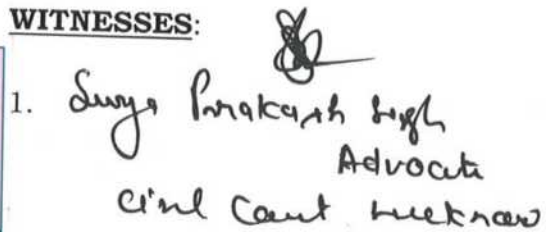 WITNESSES:
1. Surya Prakash Singh
Advocate
Civil Court Lucknow